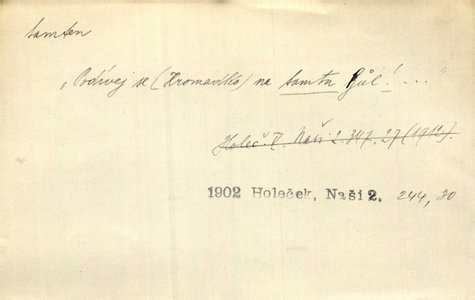 tamten
„Podívej se (Hromádko) na tamtu Gůl! . . . "
Holeč. V. Naši 2. 347, 27 (1912).
1902 Holeček, Naši 2. 244, 30